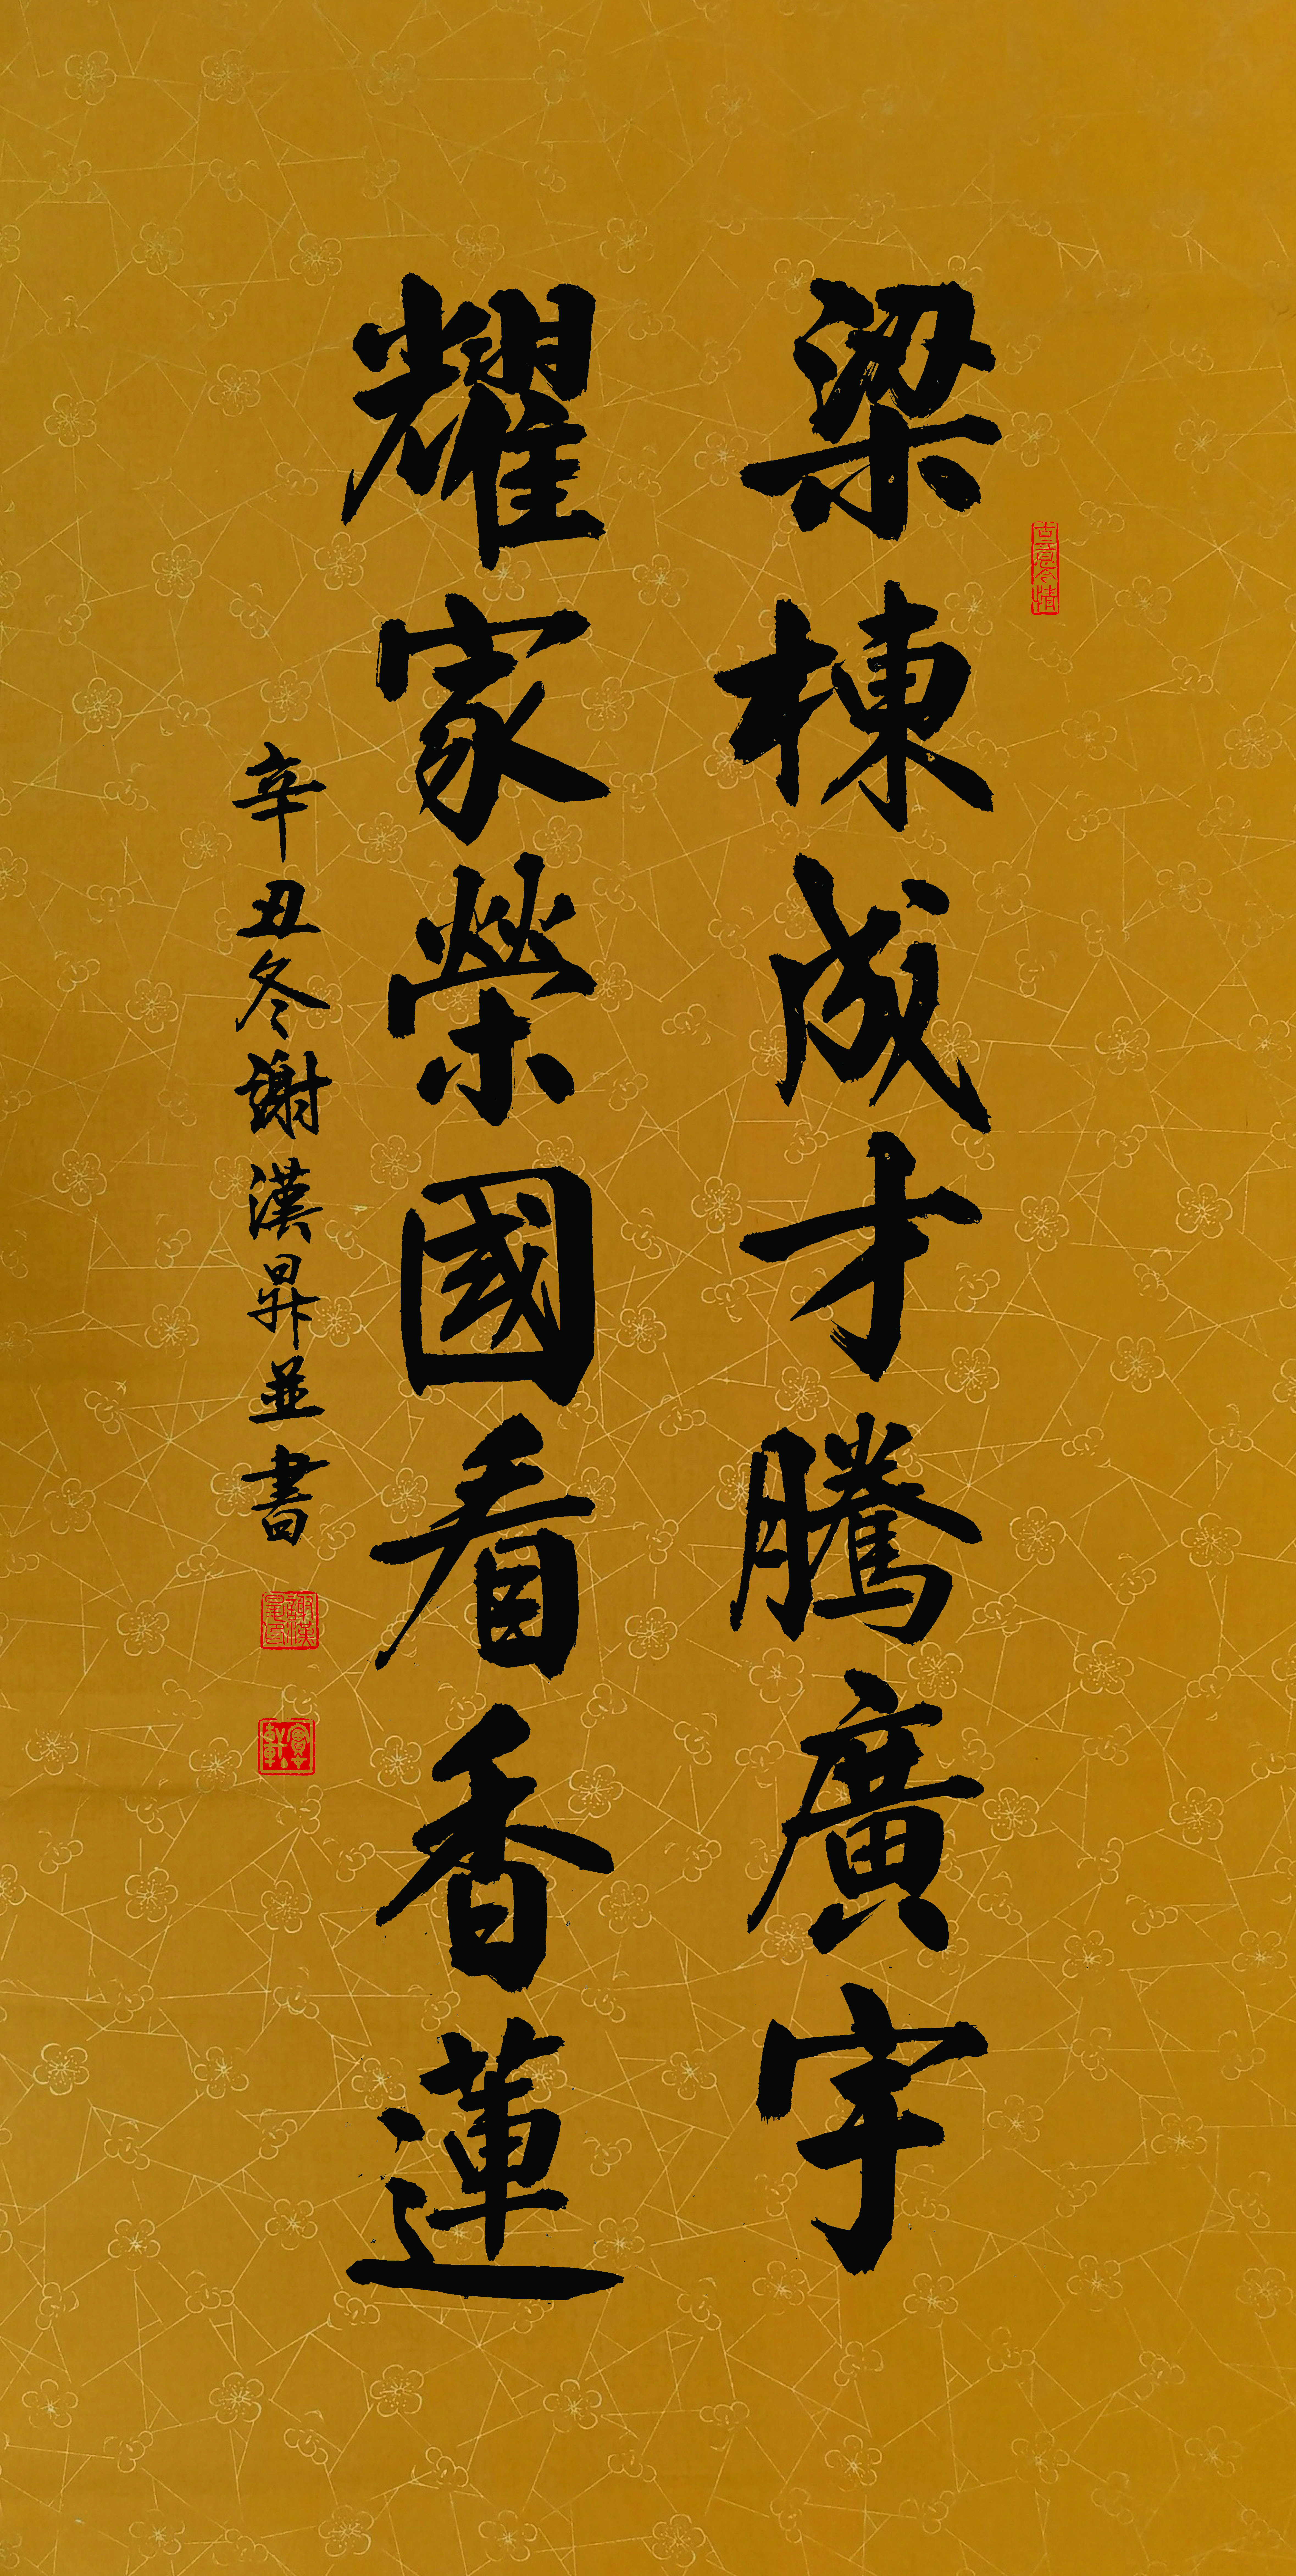 梁棟成才騰廣宇
耀家榮國看香蓮
辛丑冬謝漢昇並書
古意今情